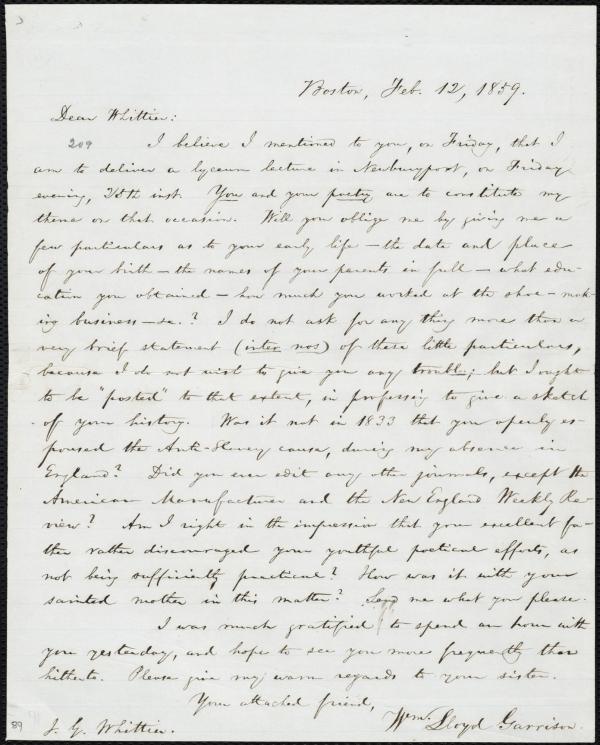 Boston, Feb. 12, 1859.
Dear Whittier:
209
I believe I mentioned to you, on Friday, that I
am to deliver a lyceum lecture in Newburyport, on Friday
evening, 25th inst. You and your poetry are to constitute my
theme on that occasion. Will you oblige me by giving me a
few particulars as to your early life — the date and place
of your birth — the names of your parents in full — what edu-
cation you obtained — how much you worked at the shoe-mak-
ing business — &c.? I do not ask for any thing more than a
very brief statement (inter nos) of these little particulars,
because I do not wish to give you any trouble; but I ought
to be "posted" to that extent, in professing to give a sketch
of your history. Was it not in 1833 that you openly es-
poused the Anti-Slavery cause, during my absence in
England? Did you ever edit any other journals, except the
American Manufacturer and the New England Weekly Re-
view? Am I right in the impression that your excellent fa-
ther rather discouraged your youthful poetical efforts, as
not being sufficiently practical? How was it with your
sainted mother in this matter? Send me what you please.
I was much gratified to spend an hour with
you yesterday, and hope to see you more frequently than
hitherto. Please give my warm regards to your sister.
Your attached friend,
Wm. Lloyd Garrison.
J. G. Whittier.
89